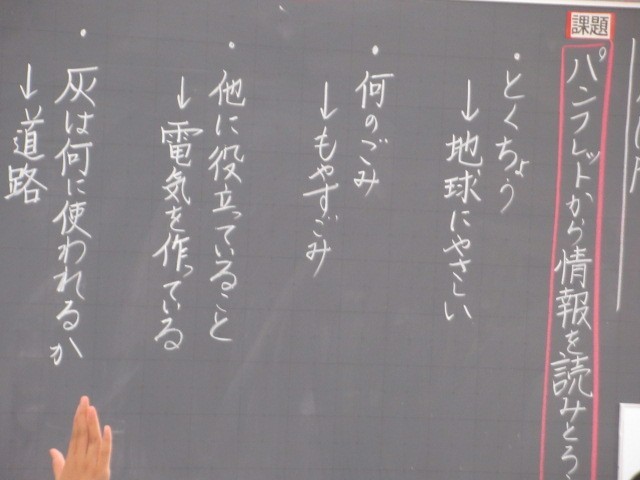 課題
パンフレットから情報を読みとろう
・とくちょう
↓地球にやさしい
・何のごみ
↓もやすごみ
・他に役立っていること
↓電気を作っている
・灰は何に使われるか
↓道路